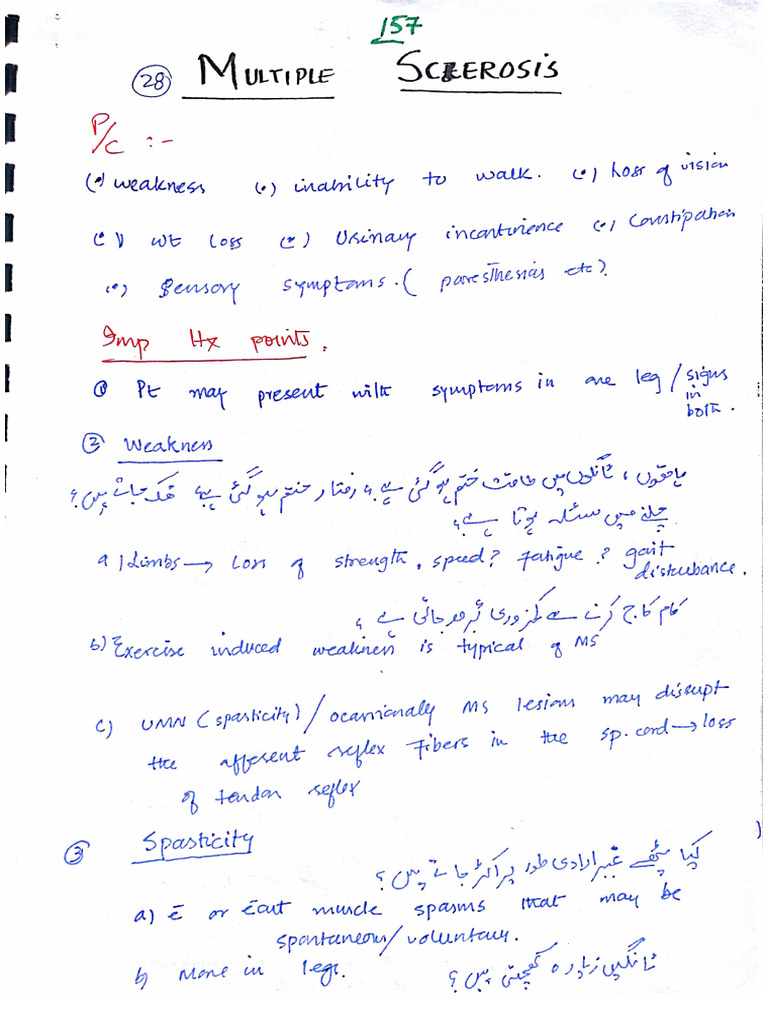 157
28 MULTIPLE SCLEROSIS
P/C :-
(•) weakness (•) inability to walk. (•) Loss of vision
(•) wt loss (•) Urinary incontinence (•) Constipation
(•) Sensory symptoms. ( paresthesias etc).
Imp Hx points.
① Pt may present with symptoms in one leg / signs in both.
② Weakness
ہاتھوں، ٹانگوں میں طاقت ختم ہو گئی ہے، رفتار ختم ہو گئی ہے؟ تھک جاتے ہیں؟
چلنے میں مسئلہ ہوتا ہے؟
a) Limbs → Loss of strength, speed? fatigue? gait disturbance.
کام کاج کرنے سے کمزوری شروع ہو جاتی ہے؟
b) Exercise induced weakness is typical of MS
c) UMN (spasticity) / occasionally MS lesions may disrupt
the afferent reflex fibers in the sp. cord → loss
of tendon reflex
③ Spasticity
کیا پٹھے غیر ارادی طور پر اکڑ جاتے ہیں؟
a) c̄ or c̄out muscle spasms that may be
spontaneous/voluntary.
b) More in legs. ٹانگیں زیادہ کھچتی ہیں؟